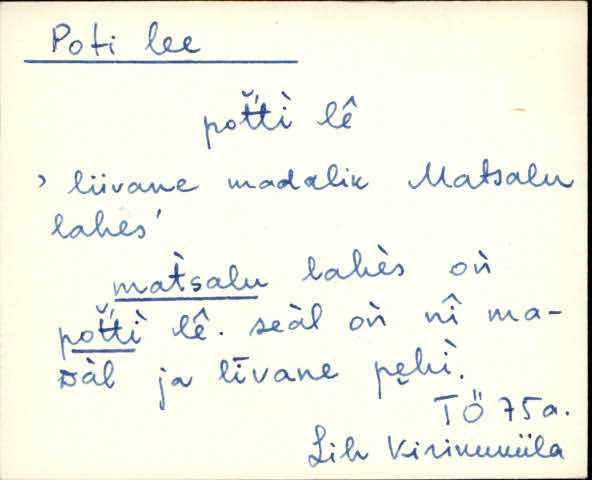 Poti lee
pŏt̆tì lê
' liivane madalik Matsalu
lahes'
mat̀salu lahès oǹ
pŏt̆tì lê. seàl oǹ nî ma-
dàl ja līvane pe̮hì.
TÖ 75a.
Lih Kirikuküla